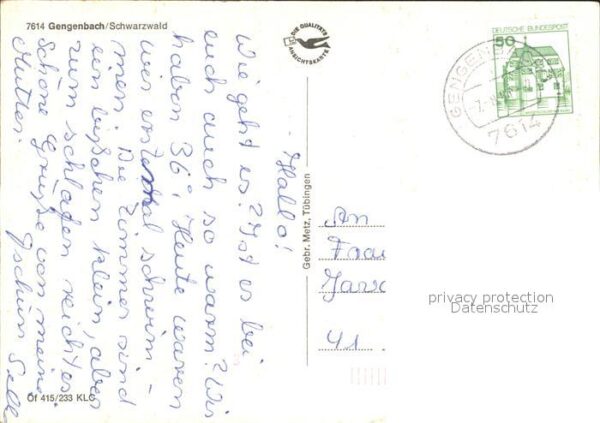 7614 Gengenbach/Schwarzwald
DIE QUALITÄTS
ANSICHTSKARTE
50
DEUTSCHE BUNDESPOST
7614
Hallo!
Wie geht es? Ist es bei
euch auch so warm? Wir
haben 36°, Heute waren
wir erstmal schwim-
men. Die Zimmer sind
ein bißchen klein, aber
zum schlafen reicht es
schöne Grüße von meine
Mutter.
Tschüss
Gebr. Metz, Tübingen
An
Frau
41
privacy protection
Datenschutz
Öf 415/233 KLC